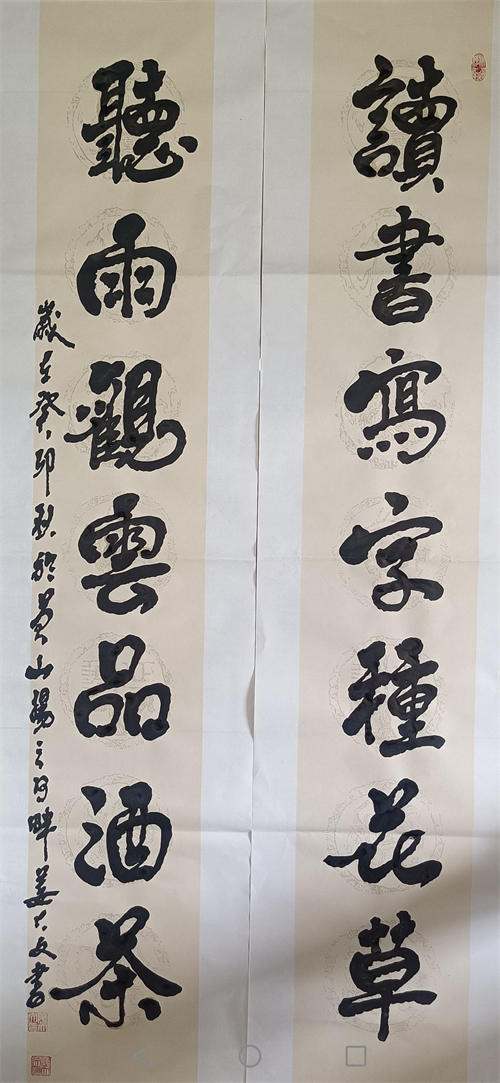 讀書寫字種花草
聽雨觀雲品酒茶
歲在癸卯秋於黄山揚之河畔姜大文書